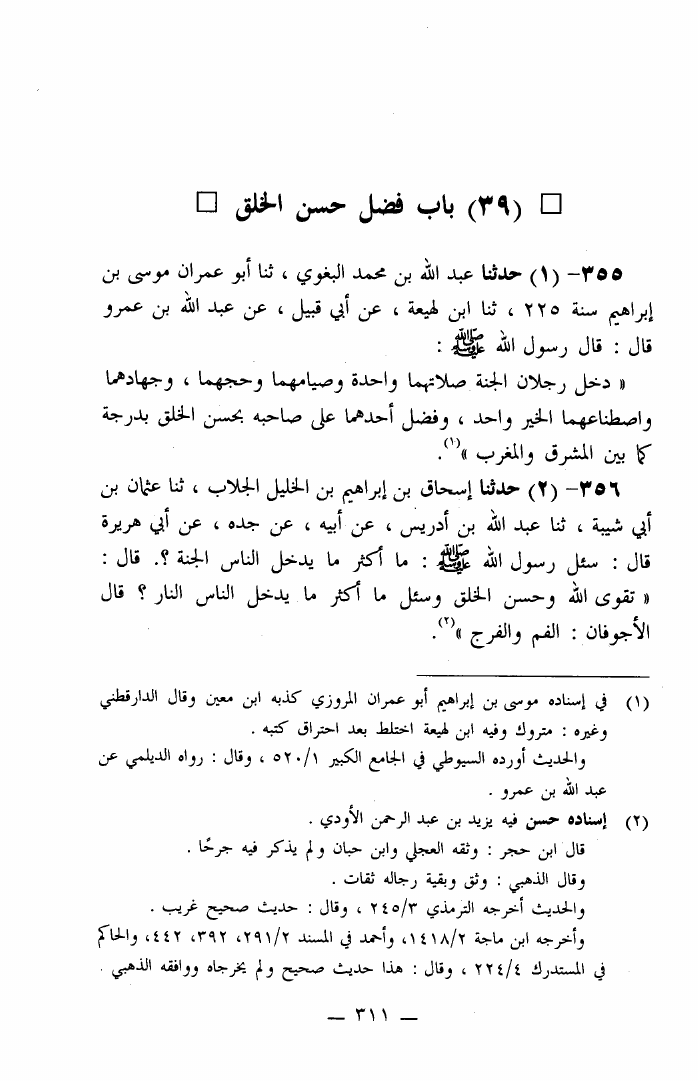 □ (٣٩) باب فضل حسن الخلق □
٣٥٥- (١) حدثنا عبد الله بن محمد البغوي ، ثنا أبو عمران موسى بن
إبراهيم سنة ٢٢٥ ، ثنا ابن لهيعة ، عن أبي قبيل ، عن عبد الله بن عمرو
قال : قال رسول الله ﷺ :
« دخل رجلان الجنة صلاتهما واحدة وصيامهما وحجهما ، وجهادهما
واصطناعهما الخير واحد ، وفضل أحدهما على صاحبه بحسن الخلق بدرجة
كما بين المشرق والمغرب »(١).
٣٥٦- (٢) حدثنا إسحاق بن إبراهيم بن الخليل الجلاب ، ثنا عثمان بن
أبي شيبة ، ثنا عبد الله بن أدريس ، عن أبيه ، عن جده ، عن أبي هريرة
قال : سئل رسول الله ﷺ : ما أكثر ما يدخل الناس الجنة ؟. قال :
« تقوى الله وحسن الخلق وسئل ما أكثر ما يدخل الناس النار ؟ قال
الأجوفان : الفم والفرج »(٢).
(١) في إسناده موسى بن إبراهيم أبو عمران المروزي كذبه ابن معين وقال الدارقطني
وغيره : متروك وفيه ابن لهيعة اختلط بعد احتراق كتبه .
والحديث أورده السيوطي في الجامع الكبير ٥٢٠/١ ، وقال : رواه الديلمي عن
عبد الله بن عمرو .
(٢) إسناده حسن فيه يزيد بن عبد الرحمن الأودي .
قال ابن حجر : وثقه العجلي وابن حبان ولم يذكر فيه جرحًا .
وقال الذهبي : وثق وبقية رجاله ثقات .
والحديث أخرجه الترمذي ٢٤٥/٣ ، وقال : حديث صحيح غريب .
وأخرجه ابن ماجة ١٤١٨/٢، وأحمد في المسند ٢٩١/٢، ٣٩٢، ٤٤٢، والحاكم
في المستدرك ٢٢٤/٤ ، وقال : هذا حديث صحيح ولم يخرجاه ووافقه الذهبي .
— ٣١١ —